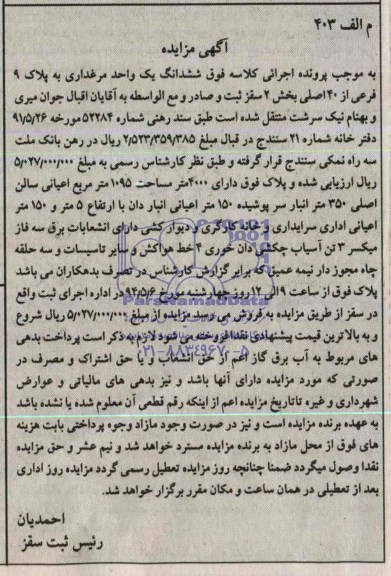 م الف ۴۰۳
آگهی مزایده
به موجب پرونده اجرائی کلاسه فوق ششدانگ یک واحد مرغداری به پلاک ۹
فرعی از ۴۰ اصلی بخش ۲ سقز ثبت و صادر و مع الواسطه به آقایان اقبال جوان میری
و بهنام نیک سرشت منتقل شده است طبق سند رهنی شماره ۵۲۲۸۴ مورخه ۹۱/۵/۲۶
دفتر خانه شماره ۲۱ سنندج در قبال مبلغ ۲/۵۲۳/۳۵۹/۳۸۵ ریال در رهن بانک ملت
سه راه نمکی سنندج قرار گرفته و طبق نظر کارشناس رسمی به مبلغ ۵/۰۲۷/۰۰۰/۰۰۰
ریال ارزیابی شده و پلاک فوق دارای ۴۰۰۰ متر مساحت ۱۰۹۵ متر مربع اعیانی سالن
اصلی ۳۵۰ متر انبار سر پوشیده ۱۵۰ متر اعیانی انبار دان با ارتفاع ۵ متر و ۱۵۰ متر
اعیانی اداری سرایداری و خانه کارگری و دیوار کشی دارای انشعابات برق سه فاز
میکسر ۳ تن آسیاب چکشی دان خوری ۴ خط هواکش و سایر تاسیسات و سه حلقه
چاه مجوز دار نیمه عمیق که برابر گزارش کارشناس در تصرف بدهکاران می باشد
پلاک فوق از ساعت ۹ الی ۱۲ روز چهارشنبه مورخ ۹۴/۵/۶ در اداره اجرای ثبت واقع
در سقز از طریق مزایده به فروش می رسد مزایده از مبلغ ۵/۰۲۷/۰۰۰/۰۰۰ ریال شروع
و به بالاترین قیمت پیشنهادی نقدا فروخته می شود لازم به ذکر است پرداخت بدهی
های مربوط به آب برق گاز اعم از حق انشعاب و یا حق اشتراک و مصرف در
صورتی که مورد مزایده دارای آنها باشد و نیز بدهی های مالیاتی و عوارض
شهرداری و غیره تا تاریخ مزایده اعم از اینکه رقم قطعی آن معلوم شده یا نشده باشد
به عهده برنده مزایده است و نیز در صورت وجود مازاد وجوه پرداختی بابت هزینه
های فوق از محل مازاد به برنده مزایده مسترد خواهد شد و نیم عشر و حق مزایده
نقدا وصول میگردد ضمنا چنانچه روز مزایده تعطیل رسمی گردد مزایده روز اداری
بعد از تعطیلی در همان ساعت و مکان مقرر برگزار خواهد شد.
احمدیان
رئیس ثبت سقز
ParsNamadData
۰۲۱-۸۸۳۴۹۶۷۰-۵